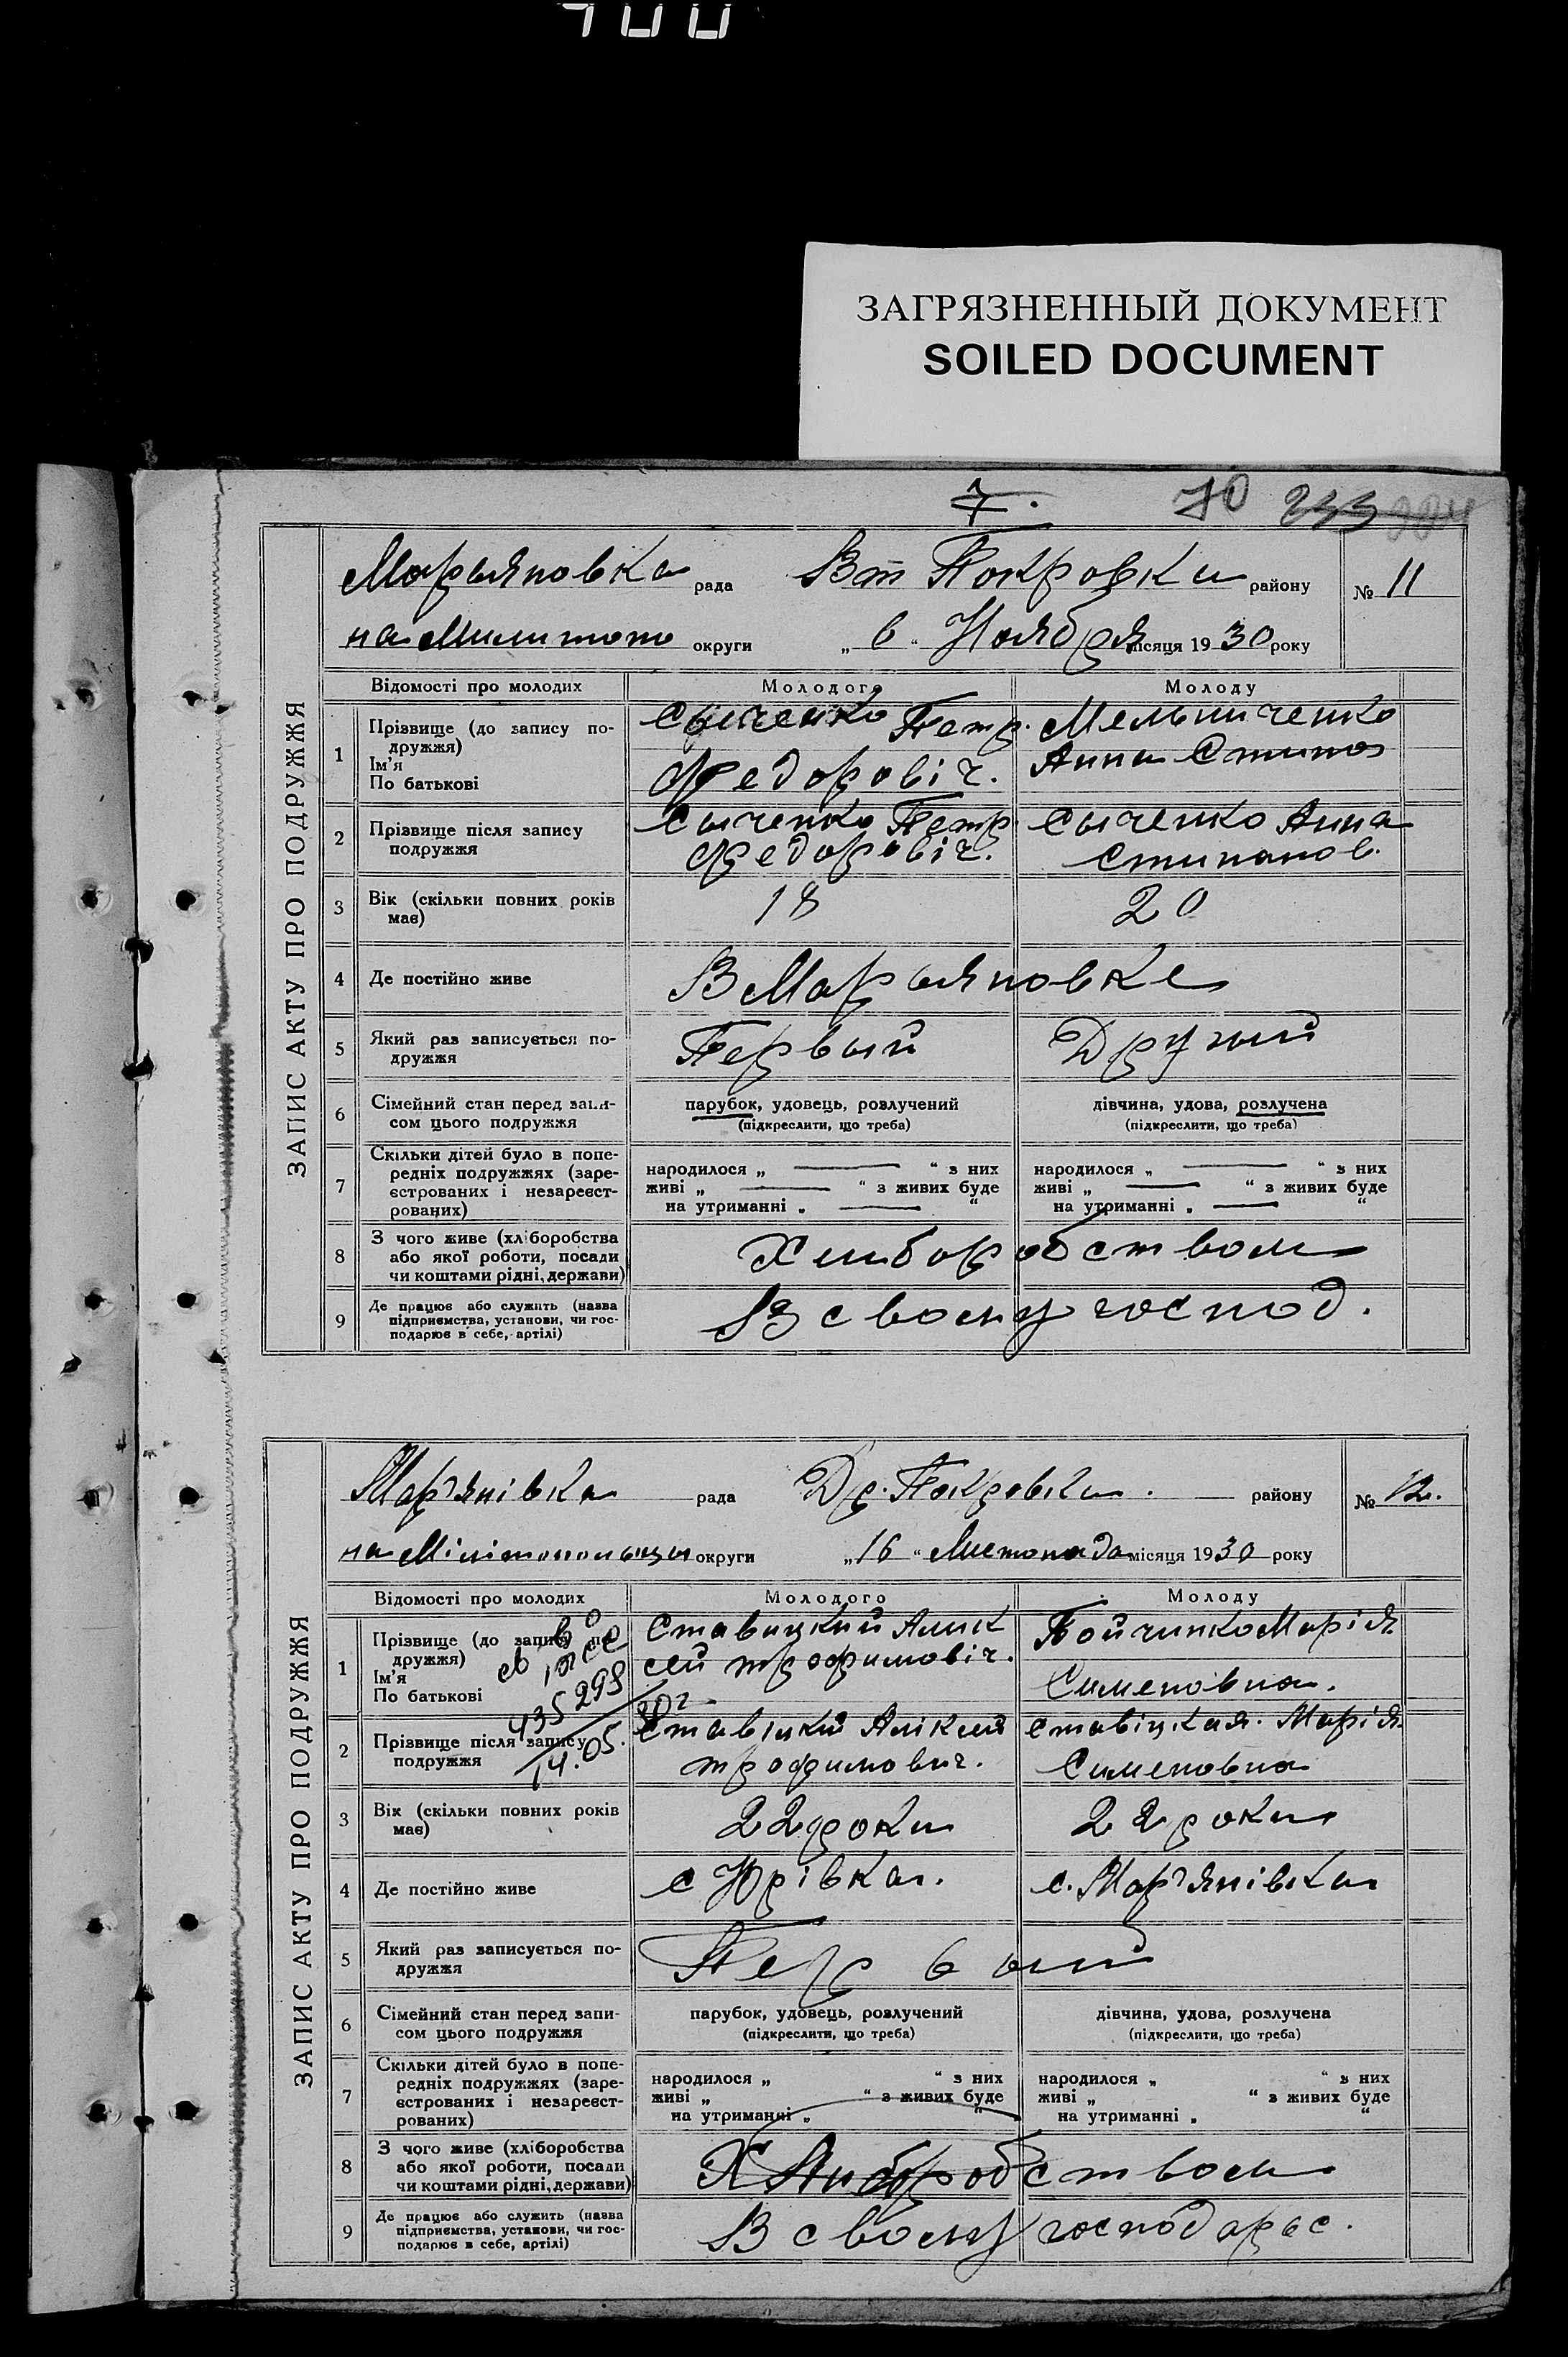 ЗАГРЯЗНЕННЫЙ ДОКУМЕНТ
SOILED DOCUMENT
7. 70 233
ЗАПИС АКТУ ПРО ПОДРУЖЖЯ
Марьяновка рада Вт Покровки району № 11
на Милитоп округи „ 6 “ Ноября місяця 1930 року
Відомості про молодих Молодого Молоду
1 Прізвище (до запису по-
дружжя)
Ім'я
По батькові
Сыченко Петр.
Федоровіч.
Мельниченко
Анна Стипан
2 Прізвище після запису
подружжя
Сыченко Петр.
Федоровіч.
Сыченко Анна
Стипанов.
3 Вік (скільки повних років
має)
18 20
4 Де постійно живе В Марьяновке
5 Який раз записується по-
дружжя
Первый Другый
6 Сімейний стан перед запи-
сом цього подружжя
парубок, удовець, розлучений
(підкреслити, що треба)
дівчина, удова, розлучена
(підкреслити, що треба)
7 Скільки дітей було в попе-
редніх подружжях (заре-
єстрованих і незареєст-
рованих)
народилося „ “ з них
живі „ “ з живих буде
на утриманні „ “
народилося „ “ з них
живі „ “ з живих буде
на утриманні „ “
8 З чого живе (хліборобства
або якої роботи, посади
чи коштами рідні, держави)
Хлиборобством
9 Де працює або служить (назва
підприємства, установи, чи гос-
подарює в себе, артілі)
В своему господ.
ЗАПИС АКТУ ПРО ПОДРУЖЖЯ
Мар'янівка рада Др. Покровки. району № 12.
на Мілітопольщи округи „16“ Листопада місяця 1930 року
Відомості про молодих Молодого Молоду
1 Прізвище (до запису по-
дружжя)
Ім'я
По батькові
435298
14.05.
Ставицкий Алик
сей трофимовіч.
Бойчинко Марія
Сименовна.
2 Прізвище після запису
подружжя
Ставіцкий Аліксий
трофимович.
Ставіцкая. Марія
Сименовна
3 Вік (скільки повних років
має)
22 роки 22 роки
4 Де постійно живе с Юрівка. с. Мар'янівка
5 Який раз записується по-
дружжя
Первый
6 Сімейний стан перед запи-
сом цього подружжя
парубок, удовець, розлучений
(підкреслити, що треба)
дівчина, удова, розлучена
(підкреслити, що треба)
7 Скільки дітей було в попе-
редніх подружжях (заре-
єстрованих і незареєст-
рованих)
народилося „ “ з них
живі „ “ з живих буде
на утриманні „ “
народилося „ “ з них
живі „ “ з живих буде
на утриманні „ “
8 З чого живе (хліборобства
або якої роботи, посади
чи коштами рідні, держави)
Хлиборобством
9 Де працює або служить (назва
підприємства, установи, чи гос-
подарює в себе, артілі)
В своему господарьс.